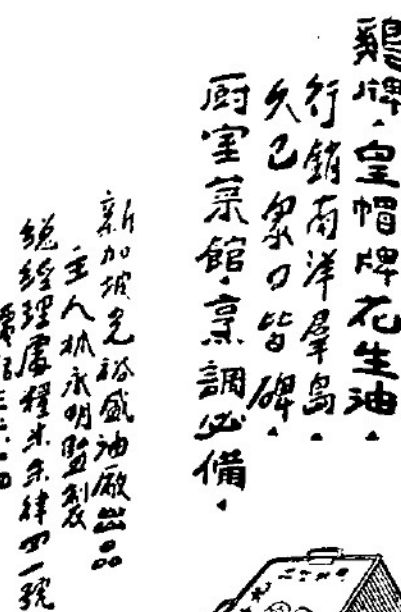 鷄牌·皇帽牌花生油·
行銷南洋羣島·
久已衆口皆碑·
厨室菜館·烹調必備·
新加坡光裕盛油廠出品
主人林永明監製
總經理處糧米朱律四一號
電話三六一四